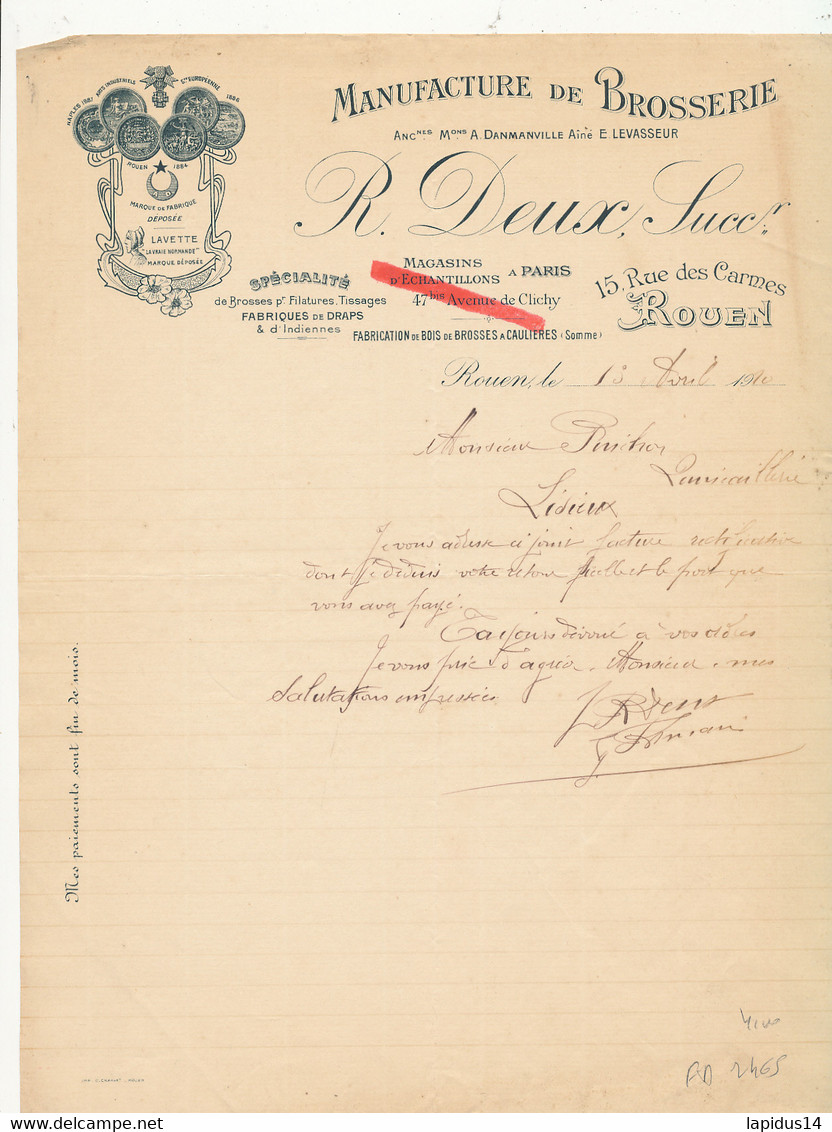 NAPLES 1887 ARTS INDUSTRIELS Sté EUROPÉENNE 1886
ROUEN 1884
MARQUE DE FABRIQUE
DÉPOSÉE
LAVETTE
"LA VRAIE NORMANDE"
MARQUE DÉPOSÉE
MANUFACTURE DE BROSSERIE
ANCNES MONS A. DANMANVILLE AÎNÉ E. LEVASSEUR
R. Deux, Succr.
SPÉCIALITÉ
de Brosses pr Filatures, Tissages
FABRIQUES DE DRAPS
& d'Indiennes
MAGASINS
D'ECHANTILLONS A PARIS
47bis Avenue de Clichy
FABRICATION DE BOIS DE BROSSES A CAULIÈRES (Somme)
15, Rue des Carmes
ROUEN
Rouen, le 13 Avril 1910
Monsieur
Lisieux
Je vous adresse ci joint facture rectificative
dont je déduis votre retour et le port que
vous avez payé.
Toujours dévoué à vos ordres
Je vous prie d'agréer, Monsieur, mes
Salutations empressées
R Deux
Mes paiements sont fin de mois.
lapidus14